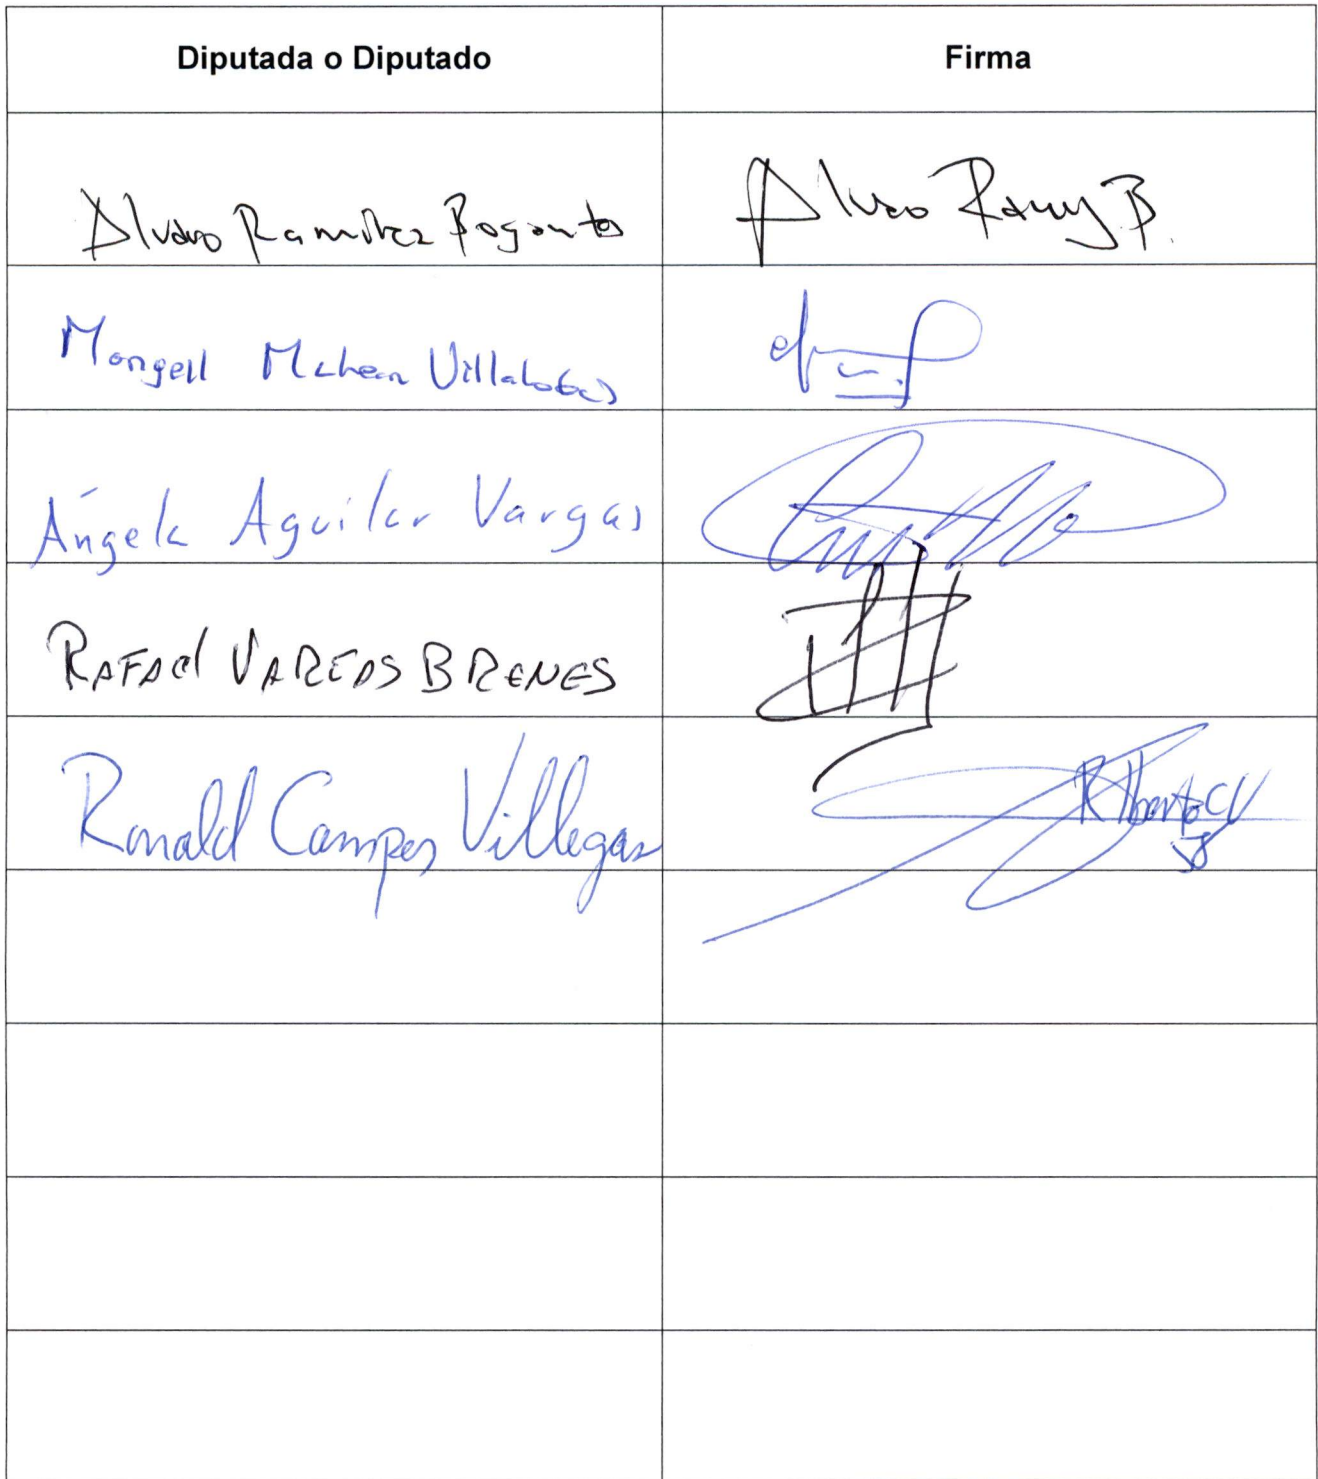 Diputada o Diputado Firma
Alvaro Ramírez Bogantes Alvaro Ramy B.
Mangell Mclean Villalobos
Ángela Aguilar Vargas
RAFAel VARGAS BRENES
Ronald Campos Villegas R Alberto CV